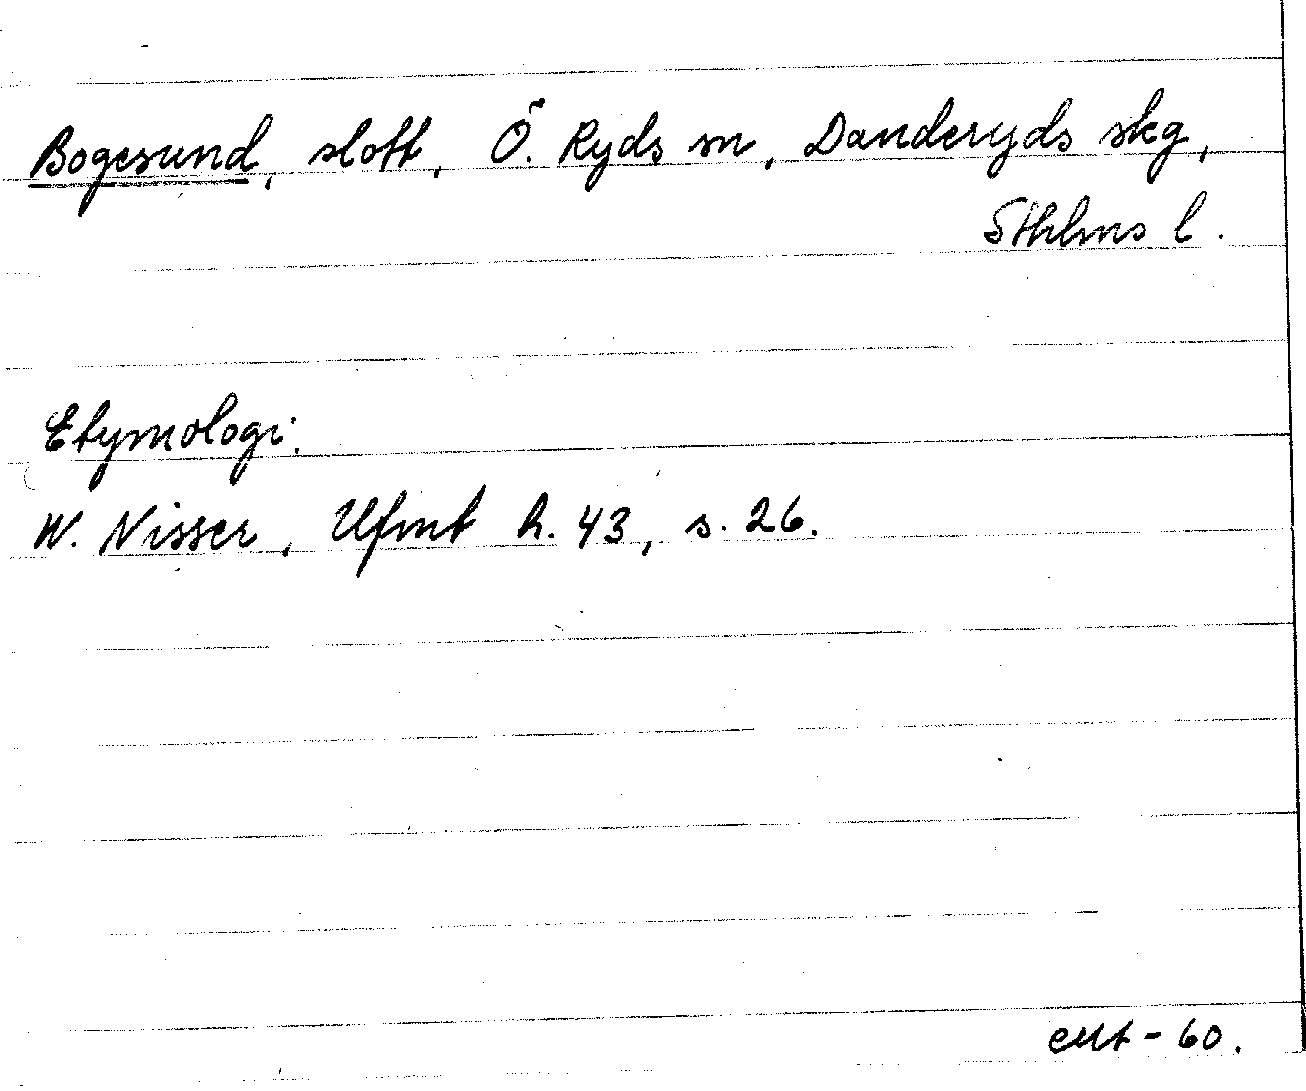 Bogesund, slott, Ö. Ryds sn, Danderyds skg,
Sthlms l.
Etymologi.
W. Nisser, Ufmt h. 43, s. 26.
- 60.